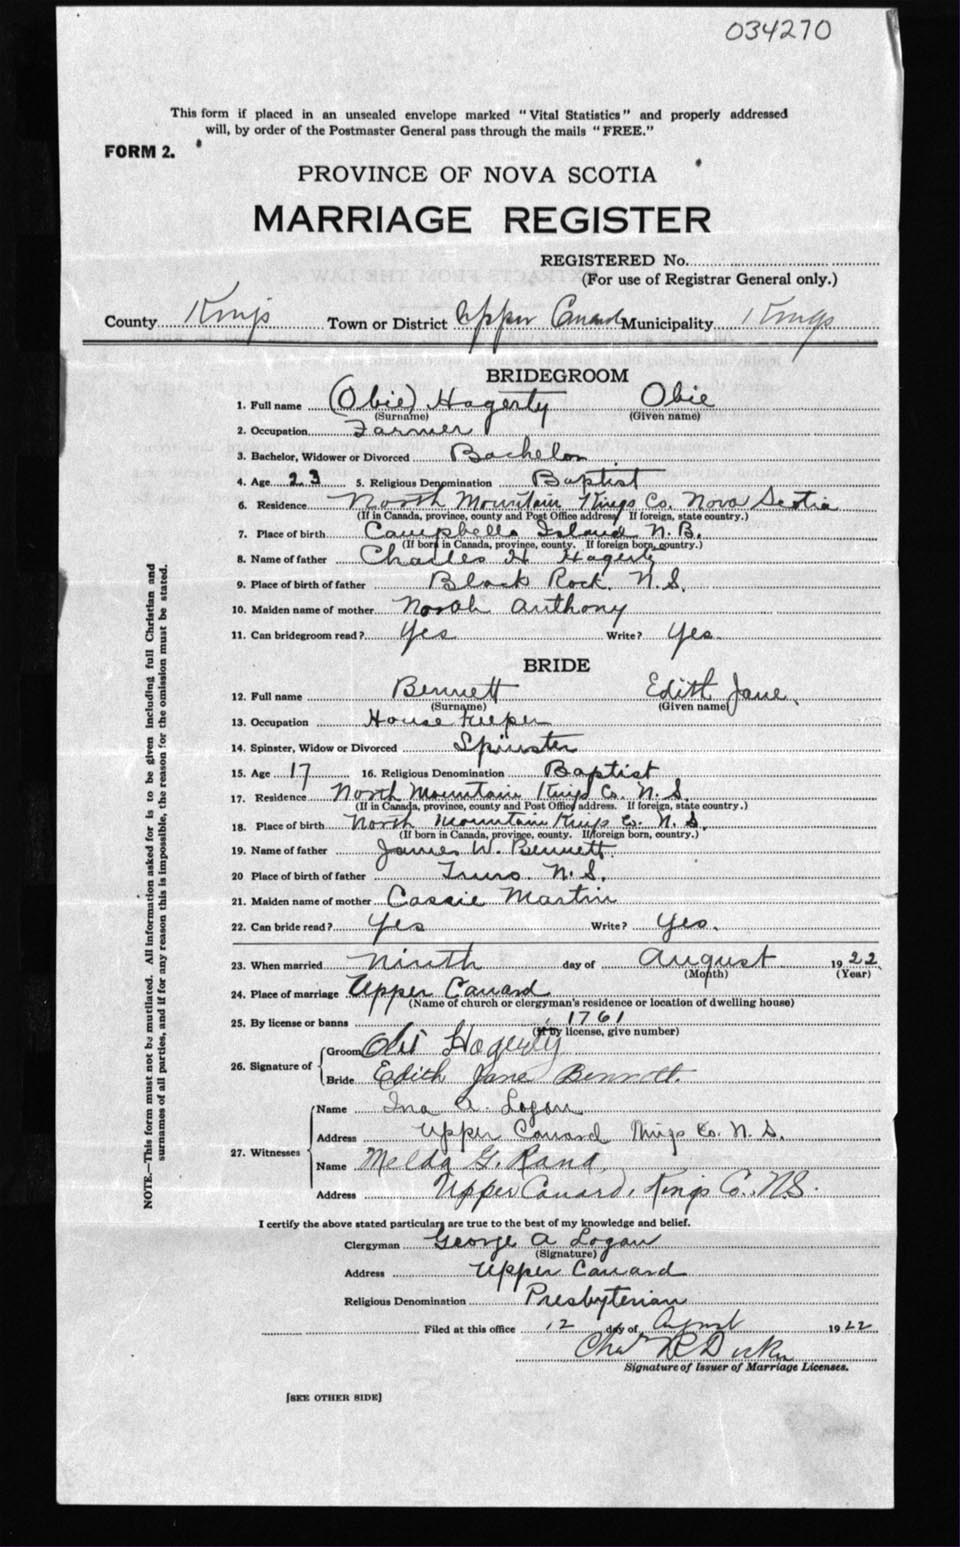 034270
This form if placed in an unsealed envelope marked "Vital Statistics" and properly addressed
will, by order of the Postmaster General pass through the mails "FREE."
FORM 2.
PROVINCE OF NOVA SCOTIA
MARRIAGE REGISTER
REGISTERED No.
(For use of Registrar General only.)
County Kings Town or District Upper Canard Municipality Kings
BRIDEGROOM
1. Full name (Obie) Hagerty Obie
(Surname) (Given name)
2. Occupation Farmer
3. Bachelor, Widower or Divorced Bachelor
4. Age 23 5. Religious Denomination Baptist
6. Residence North Mountain Kings Co. Nova Scotia
(If in Canada, province, county and Post Office address. If foreign, state country.)
7. Place of birth Campbello Island N.B.
(If born in Canada, province, county. If foreign born, country.)
8. Name of father Charles H Hagerty
9. Place of birth of father Black Rock. N.S.
10. Maiden name of mother Norah Anthony
11. Can bridegroom read? Yes Write? Yes.
BRIDE
12. Full name Bennett Edith Jane
(Surname) (Given name)
13. Occupation House Keeper
14. Spinster, Widow or Divorced Spinster
15. Age 17 16. Religious Denomination Baptist
17. Residence North Mountain Kings Co. N.S.
(If in Canada, province, county and Post Office address. If foreign, state country.)
18. Place of birth North Mountain Kings Co. N.S.
(If born in Canada, province, county. If foreign born, country.)
19. Name of father James W. Bennett.
20 Place of birth of father Truro. N.S.
21. Maiden name of mother Cassie Martin
22. Can bride read? Yes Write? Yes.
23. When married Ninth day of August 1922
(Month) (Year)
24. Place of marriage Upper Canard
(Name of church or clergyman's residence or location of dwelling house)
25. By license or banns 1761
(If by license, give number)
26. Signature of Groom Hagerty
Bride Edith Jane Bennett.
27. Witnesses Name Ina A. Logan
Address Upper Canard Kings Co. N.S.
Name Melda G. Rand.
Address Upper Canard, Kings Co. N.S.
I certify the above stated particulars are true to the best of my knowledge and belief.
Clergyman George A Logan
(Signature)
Address Upper Canard
Religious Denomination Presbyterian
Filed at this office 12 day of August 1922
Signature of Issuer of Marriage Licenses.
[SEE OTHER SIDE]
NOTE.—This form must not be mutilated. All information asked for is to be given including full Christian and
surnames of all parties, and if for any reason this is impossible, the reason for the omission must be stated.